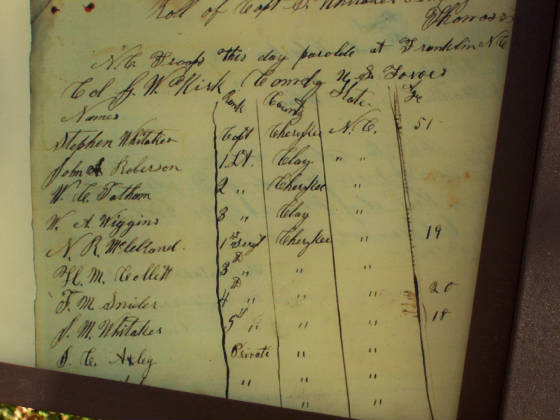 Roll of Capt S. Whitaker
Thomas
N.C. Troops this day parolde at Franklin N.C.
Col G. W. Kirk Comdg U.S. Forces
Names Rank County State
Stephen Whitaker Capt Cherykee N.C. 51
John A Roberson 1 Lt. Clay " "
W. C. Tatham 2 " Cherykee "
W. A. Wiggins 3 " Clay "
N. R. McClelland 1st Sergt Cherykee " 19
H. M. Collett 3d " " "
F. M. Snider 4 " " " 20
J. M. Whitaker 5 " " " 18
S. C. Axley Private " "
" "
"